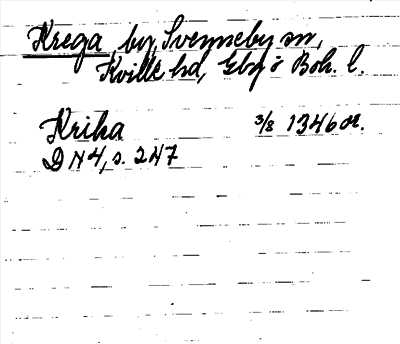 Krega, by, Svenneby sn,
Kville hd, Gbg o Boh. l.
Kriha 3/8 1346 or.
DN 4, s. 247